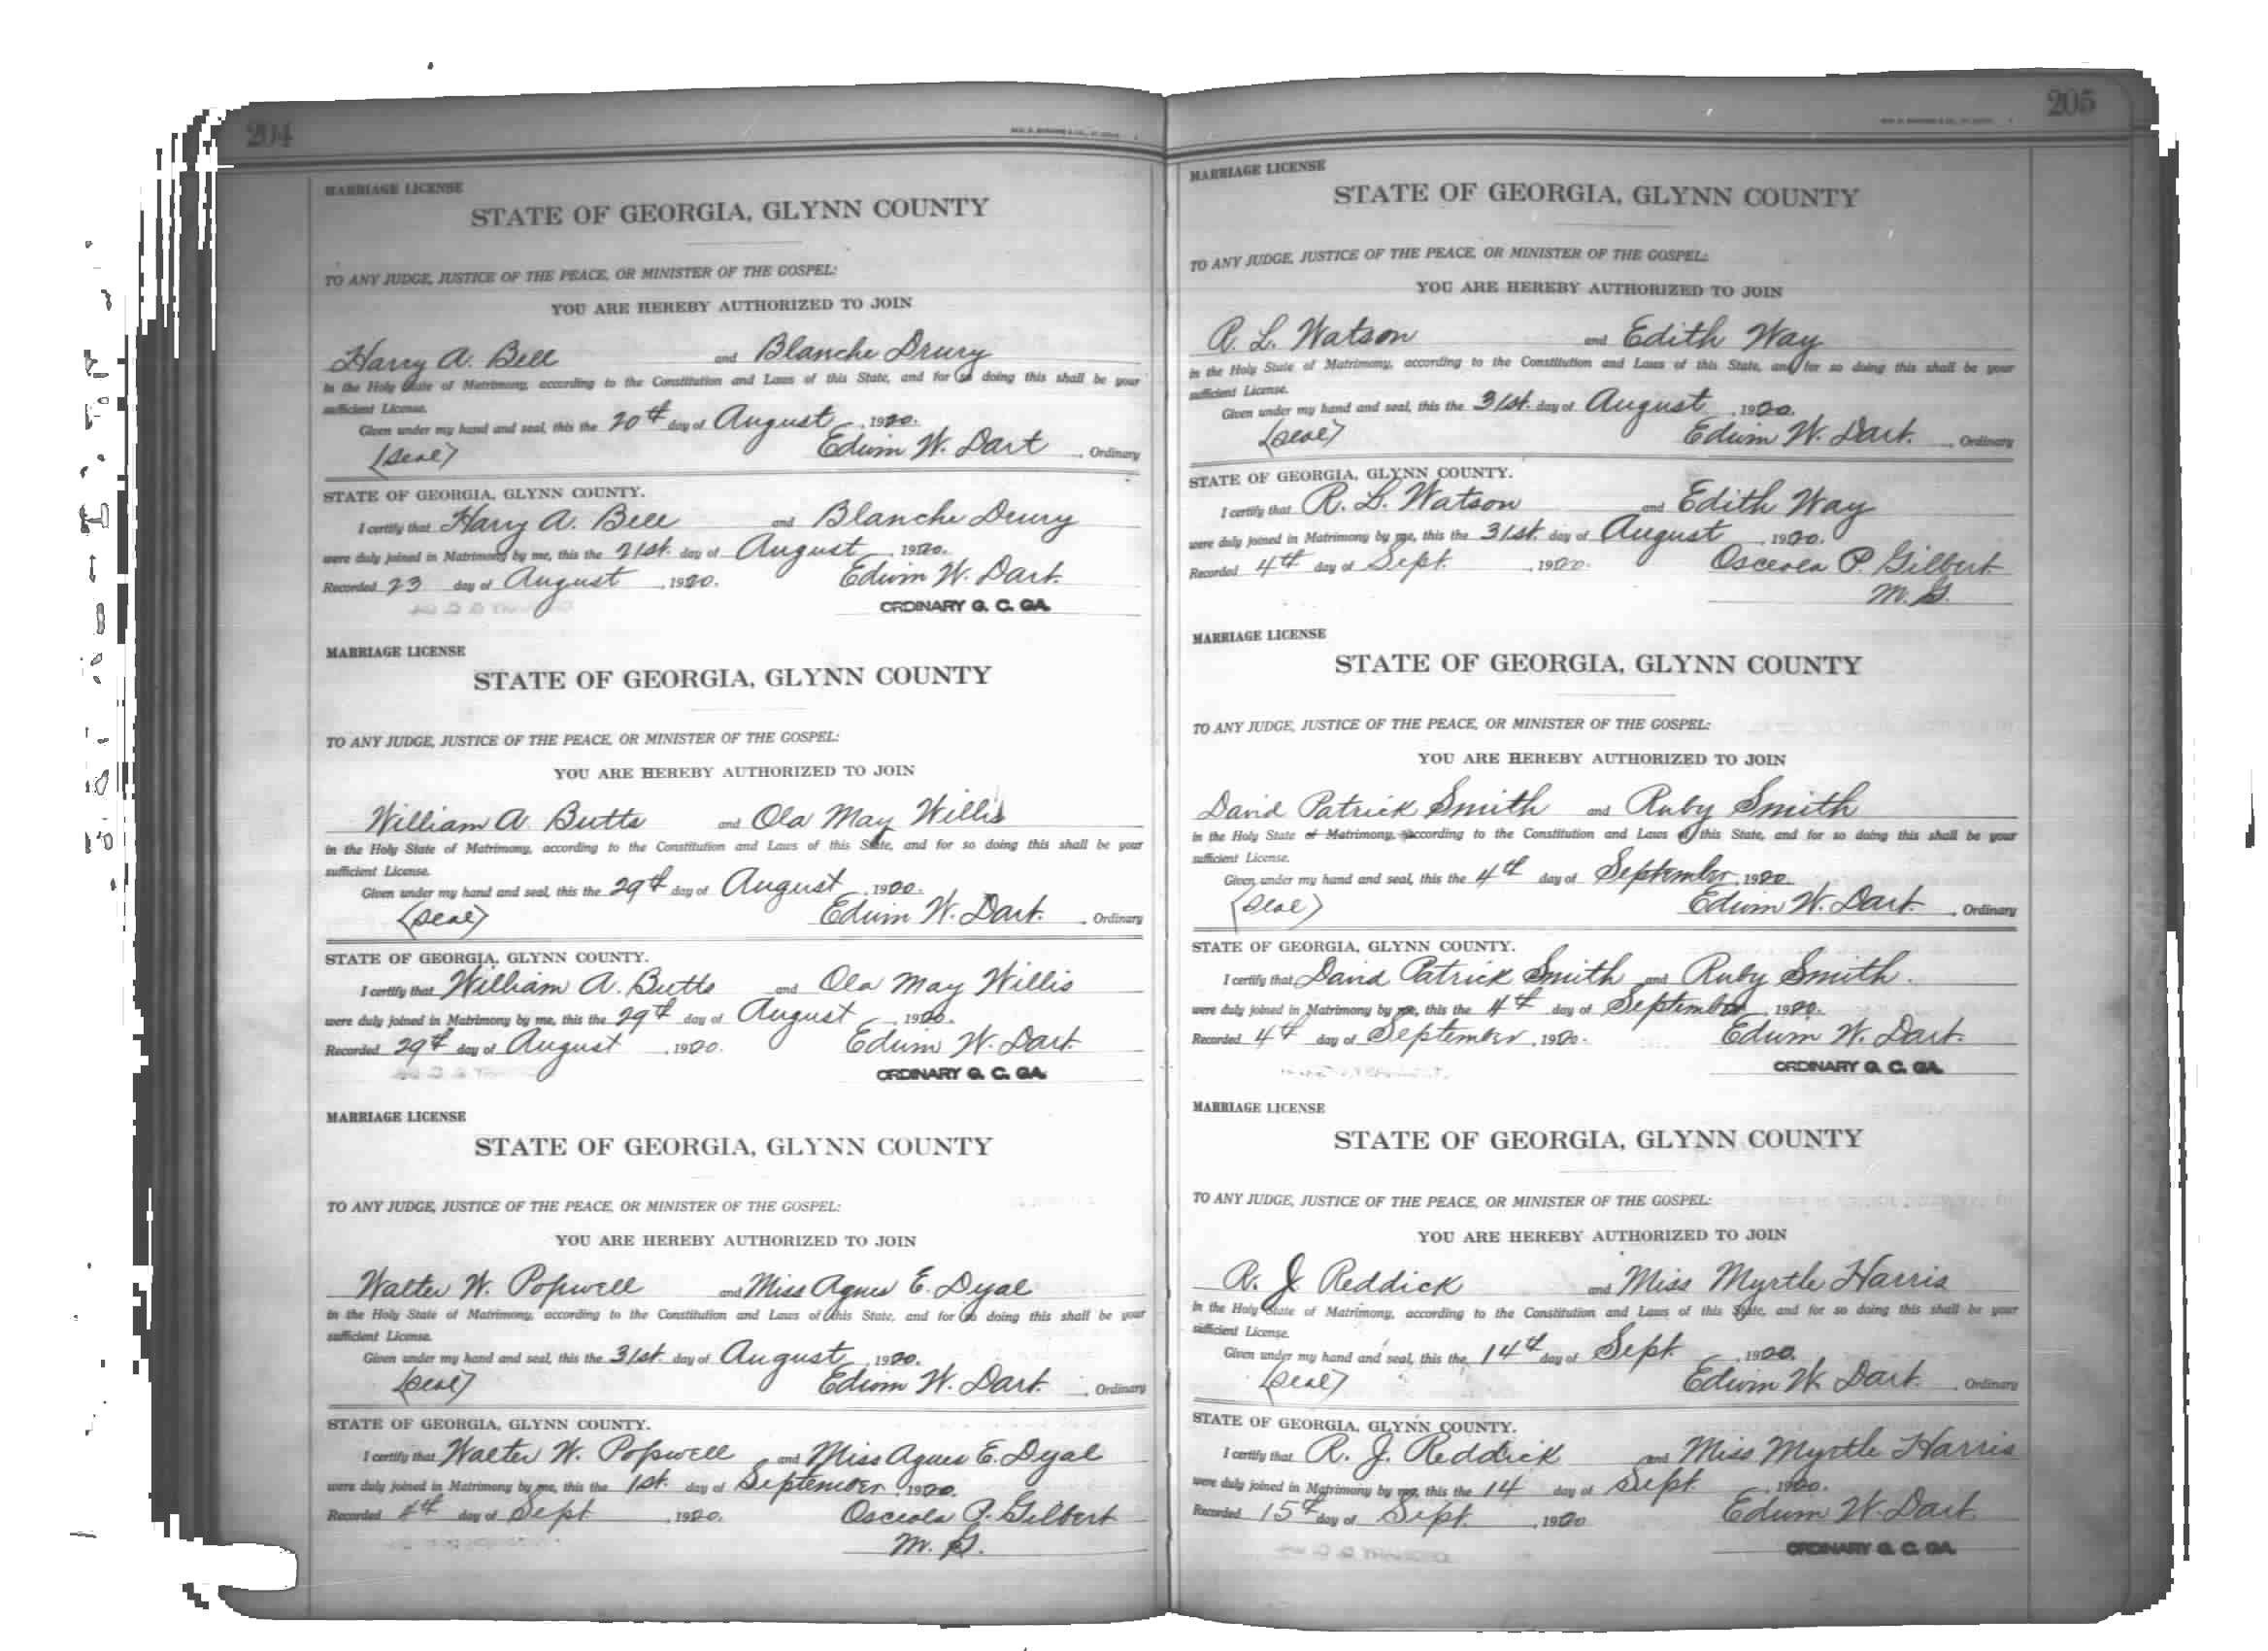 204
MARRIAGE LICENSE
STATE OF GEORGIA, GLYNN COUNTY
TO ANY JUDGE, JUSTICE OF THE PEACE, OR MINISTER OF THE GOSPEL:
YOU ARE HEREBY AUTHORIZED TO JOIN
Harry A. Bell and Blanche Drury
in the Holy State of Matrimony, according to the Constitution and Laws of this State, and for so doing this shall be your
sufficient License.
Given under my hand and seal, this the 20th day of August, 1920.
(Seal) Edwin W. Dart, Ordinary
STATE OF GEORGIA, GLYNN COUNTY.
I certify that Harry A. Bell and Blanche Drury
were duly joined in Matrimony by me, this the 21st. day of August, 1920.
Recorded 23 day of August, 1920. Edwin W. Dart.
ORDINARY G. C. GA.
MARRIAGE LICENSE
STATE OF GEORGIA, GLYNN COUNTY
TO ANY JUDGE, JUSTICE OF THE PEACE, OR MINISTER OF THE GOSPEL:
YOU ARE HEREBY AUTHORIZED TO JOIN
William A. Butts and Ola May Willis
in the Holy State of Matrimony, according to the Constitution and Laws of this State, and for so doing this shall be your
sufficient License.
Given under my hand and seal, this the 29th day of August, 1920.
(Seal) Edwin W. Dart., Ordinary
STATE OF GEORGIA, GLYNN COUNTY.
I certify that William A. Butts and Ola May Willis
were duly joined in Matrimony by me, this the 29th day of August, 1920.
Recorded 29th day of August, 1920. Edwin W. Dart.
ORDINARY G. C. GA.
MARRIAGE LICENSE
STATE OF GEORGIA, GLYNN COUNTY
TO ANY JUDGE, JUSTICE OF THE PEACE, OR MINISTER OF THE GOSPEL:
YOU ARE HEREBY AUTHORIZED TO JOIN
Walter W. Popwell and Miss Agnes E. Dyal
in the Holy State of Matrimony, according to the Constitution and Laws of this State, and for so doing this shall be your
sufficient License.
Given under my hand and seal, this the 31st. day of August, 1920.
(Seal) Edwin W. Dart., Ordinary
STATE OF GEORGIA, GLYNN COUNTY.
I certify that Walter W. Popwell and Miss Agnes E. Dyal
were duly joined in Matrimony by me, this the 1st. day of September, 1920.
Recorded 4th day of Sept, 1920. Osceola P. Gilbert
M. G.
205
MARRIAGE LICENSE
STATE OF GEORGIA, GLYNN COUNTY
TO ANY JUDGE, JUSTICE OF THE PEACE, OR MINISTER OF THE GOSPEL:
YOU ARE HEREBY AUTHORIZED TO JOIN
R. L. Watson and Edith Way
in the Holy State of Matrimony, according to the Constitution and Laws of this State, and for so doing this shall be your
sufficient License.
Given under my hand and seal, this the 31st. day of August, 1920.
(Seal) Edwin W. Dart., Ordinary
STATE OF GEORGIA, GLYNN COUNTY.
I certify that R. L. Watson and Edith Way
were duly joined in Matrimony by me, this the 31st. day of August, 1920.
Recorded 4th day of Sept., 1920. Osceola P. Gilbert
M. G.
MARRIAGE LICENSE
STATE OF GEORGIA, GLYNN COUNTY
TO ANY JUDGE, JUSTICE OF THE PEACE, OR MINISTER OF THE GOSPEL:
YOU ARE HEREBY AUTHORIZED TO JOIN
David Patrick Smith and Ruby Smith
in the Holy State of Matrimony, according to the Constitution and Laws of this State, and for so doing this shall be your
sufficient License.
Given under my hand and seal, this the 4th day of September, 1920.
(Seal) Edwin W. Dart., Ordinary
STATE OF GEORGIA, GLYNN COUNTY.
I certify that David Patrick Smith and Ruby Smith.
were duly joined in Matrimony by me, this the 4th day of September, 1920.
Recorded 4th day of September, 1920. Edwin W. Dart.
ORDINARY G. C. GA.
MARRIAGE LICENSE
STATE OF GEORGIA, GLYNN COUNTY
TO ANY JUDGE, JUSTICE OF THE PEACE, OR MINISTER OF THE GOSPEL:
YOU ARE HEREBY AUTHORIZED TO JOIN
R. J. Reddick and Miss Myrtle Harris
in the Holy State of Matrimony, according to the Constitution and Laws of this State, and for so doing this shall be your
sufficient License.
Given under my hand and seal, this the 14th day of Sept., 1920.
(Seal) Edwin W. Dart., Ordinary
STATE OF GEORGIA, GLYNN COUNTY.
I certify that R. J. Reddick and Miss Myrtle Harris
were duly joined in Matrimony by me, this the 14 day of Sept., 1920.
Recorded 15th day of Sept., 1920 Edwin W. Dart
ORDINARY G. C. GA.